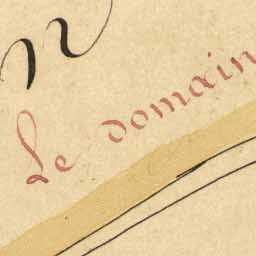 n
Le domain